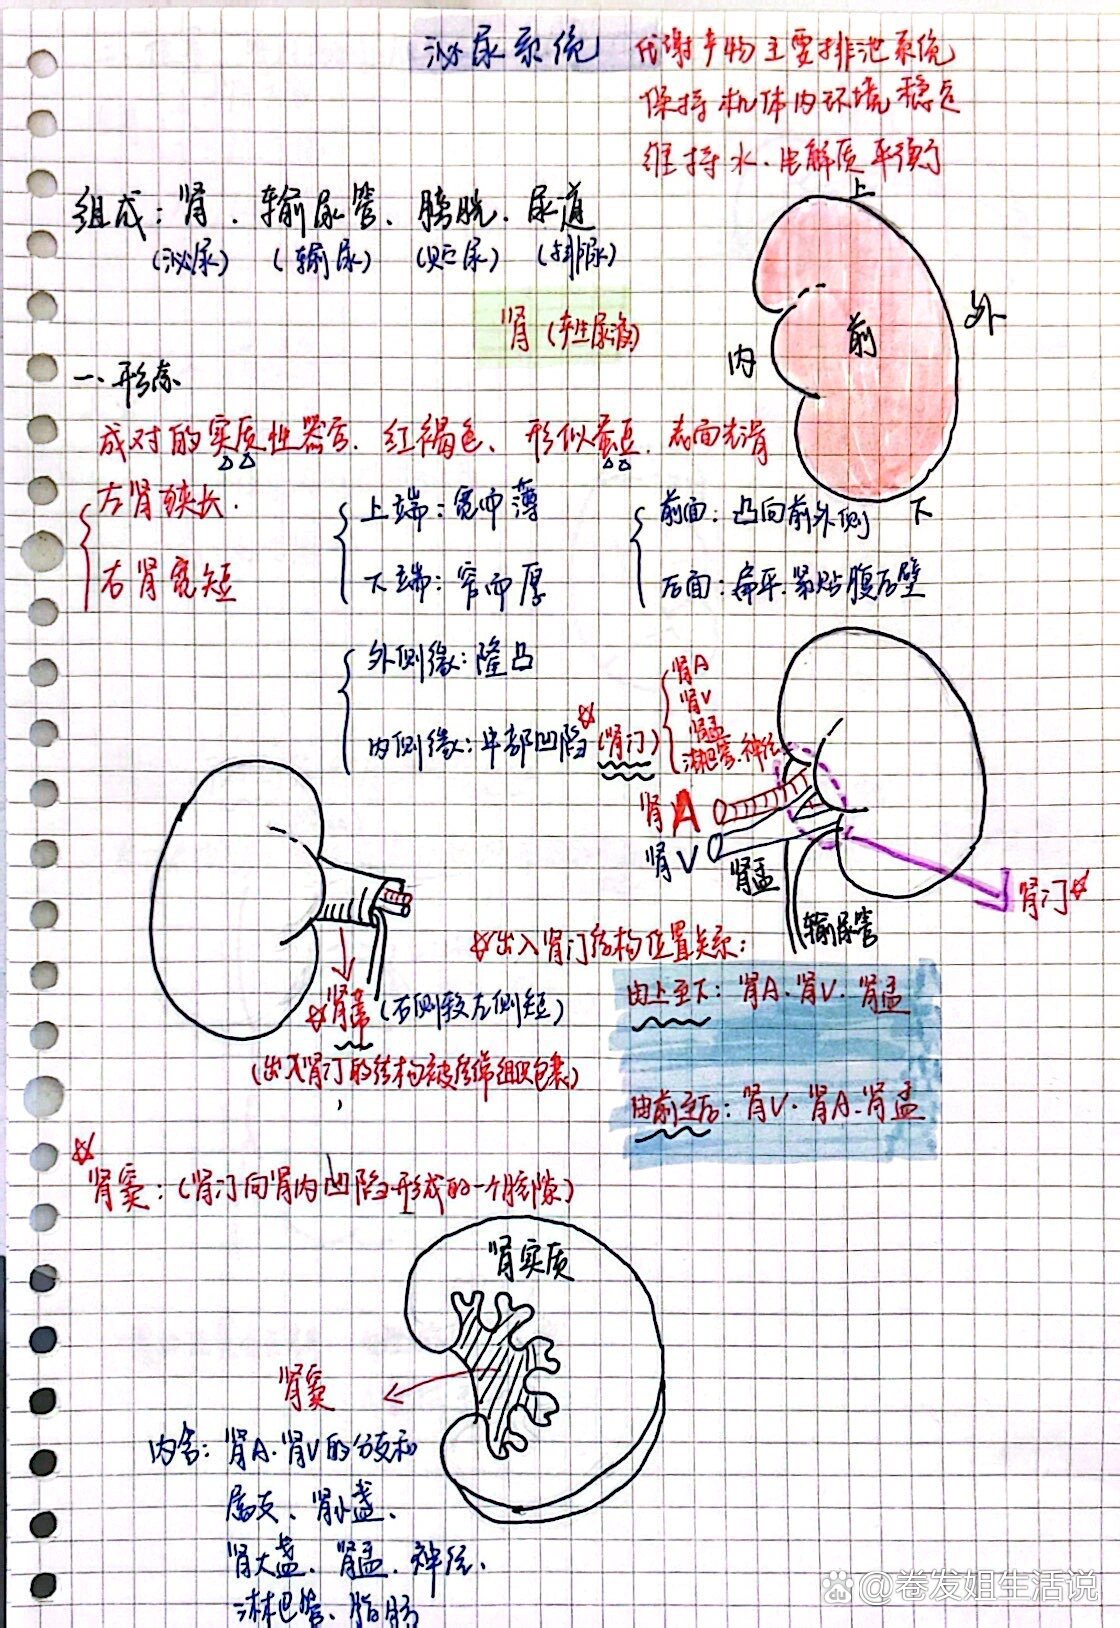 泌尿系统
代谢产物主要排泄系统
保持机体内环境稳定
维持水、电解质平衡
组成：肾、输尿管、膀胱、尿道
(泌尿) (输尿) (贮尿) (排尿)
肾(产生尿液)
上
外
前
内
下
一、形态
成对的实质性器官、红褐色、形似蚕豆、表面光滑
左肾狭长
右肾宽短
上端：宽而薄
下端：窄而厚
前面：凸向前外侧
后面：扁平、紧贴腹后壁
外侧缘：隆凸
内侧缘：中部凹陷(肾门)
肾A
肾V
肾盂
淋巴管、神经
肾A
肾V
肾盂
输尿管
肾门
出入肾门结构位置关系：
由上至下：肾A、肾V、肾盂
由前至后：肾V、肾A、肾盂
肾蒂(右侧较左侧短)
(出入肾门的结构被结缔组织包裹)
肾窦：(肾门向肾内凹陷形成的一个腔隙)
肾实质
肾窦
内含：肾A、肾V的分支和
属支、肾小盏、
肾大盏、肾盂、神经、
淋巴管、脂肪
@卷发姐生活说